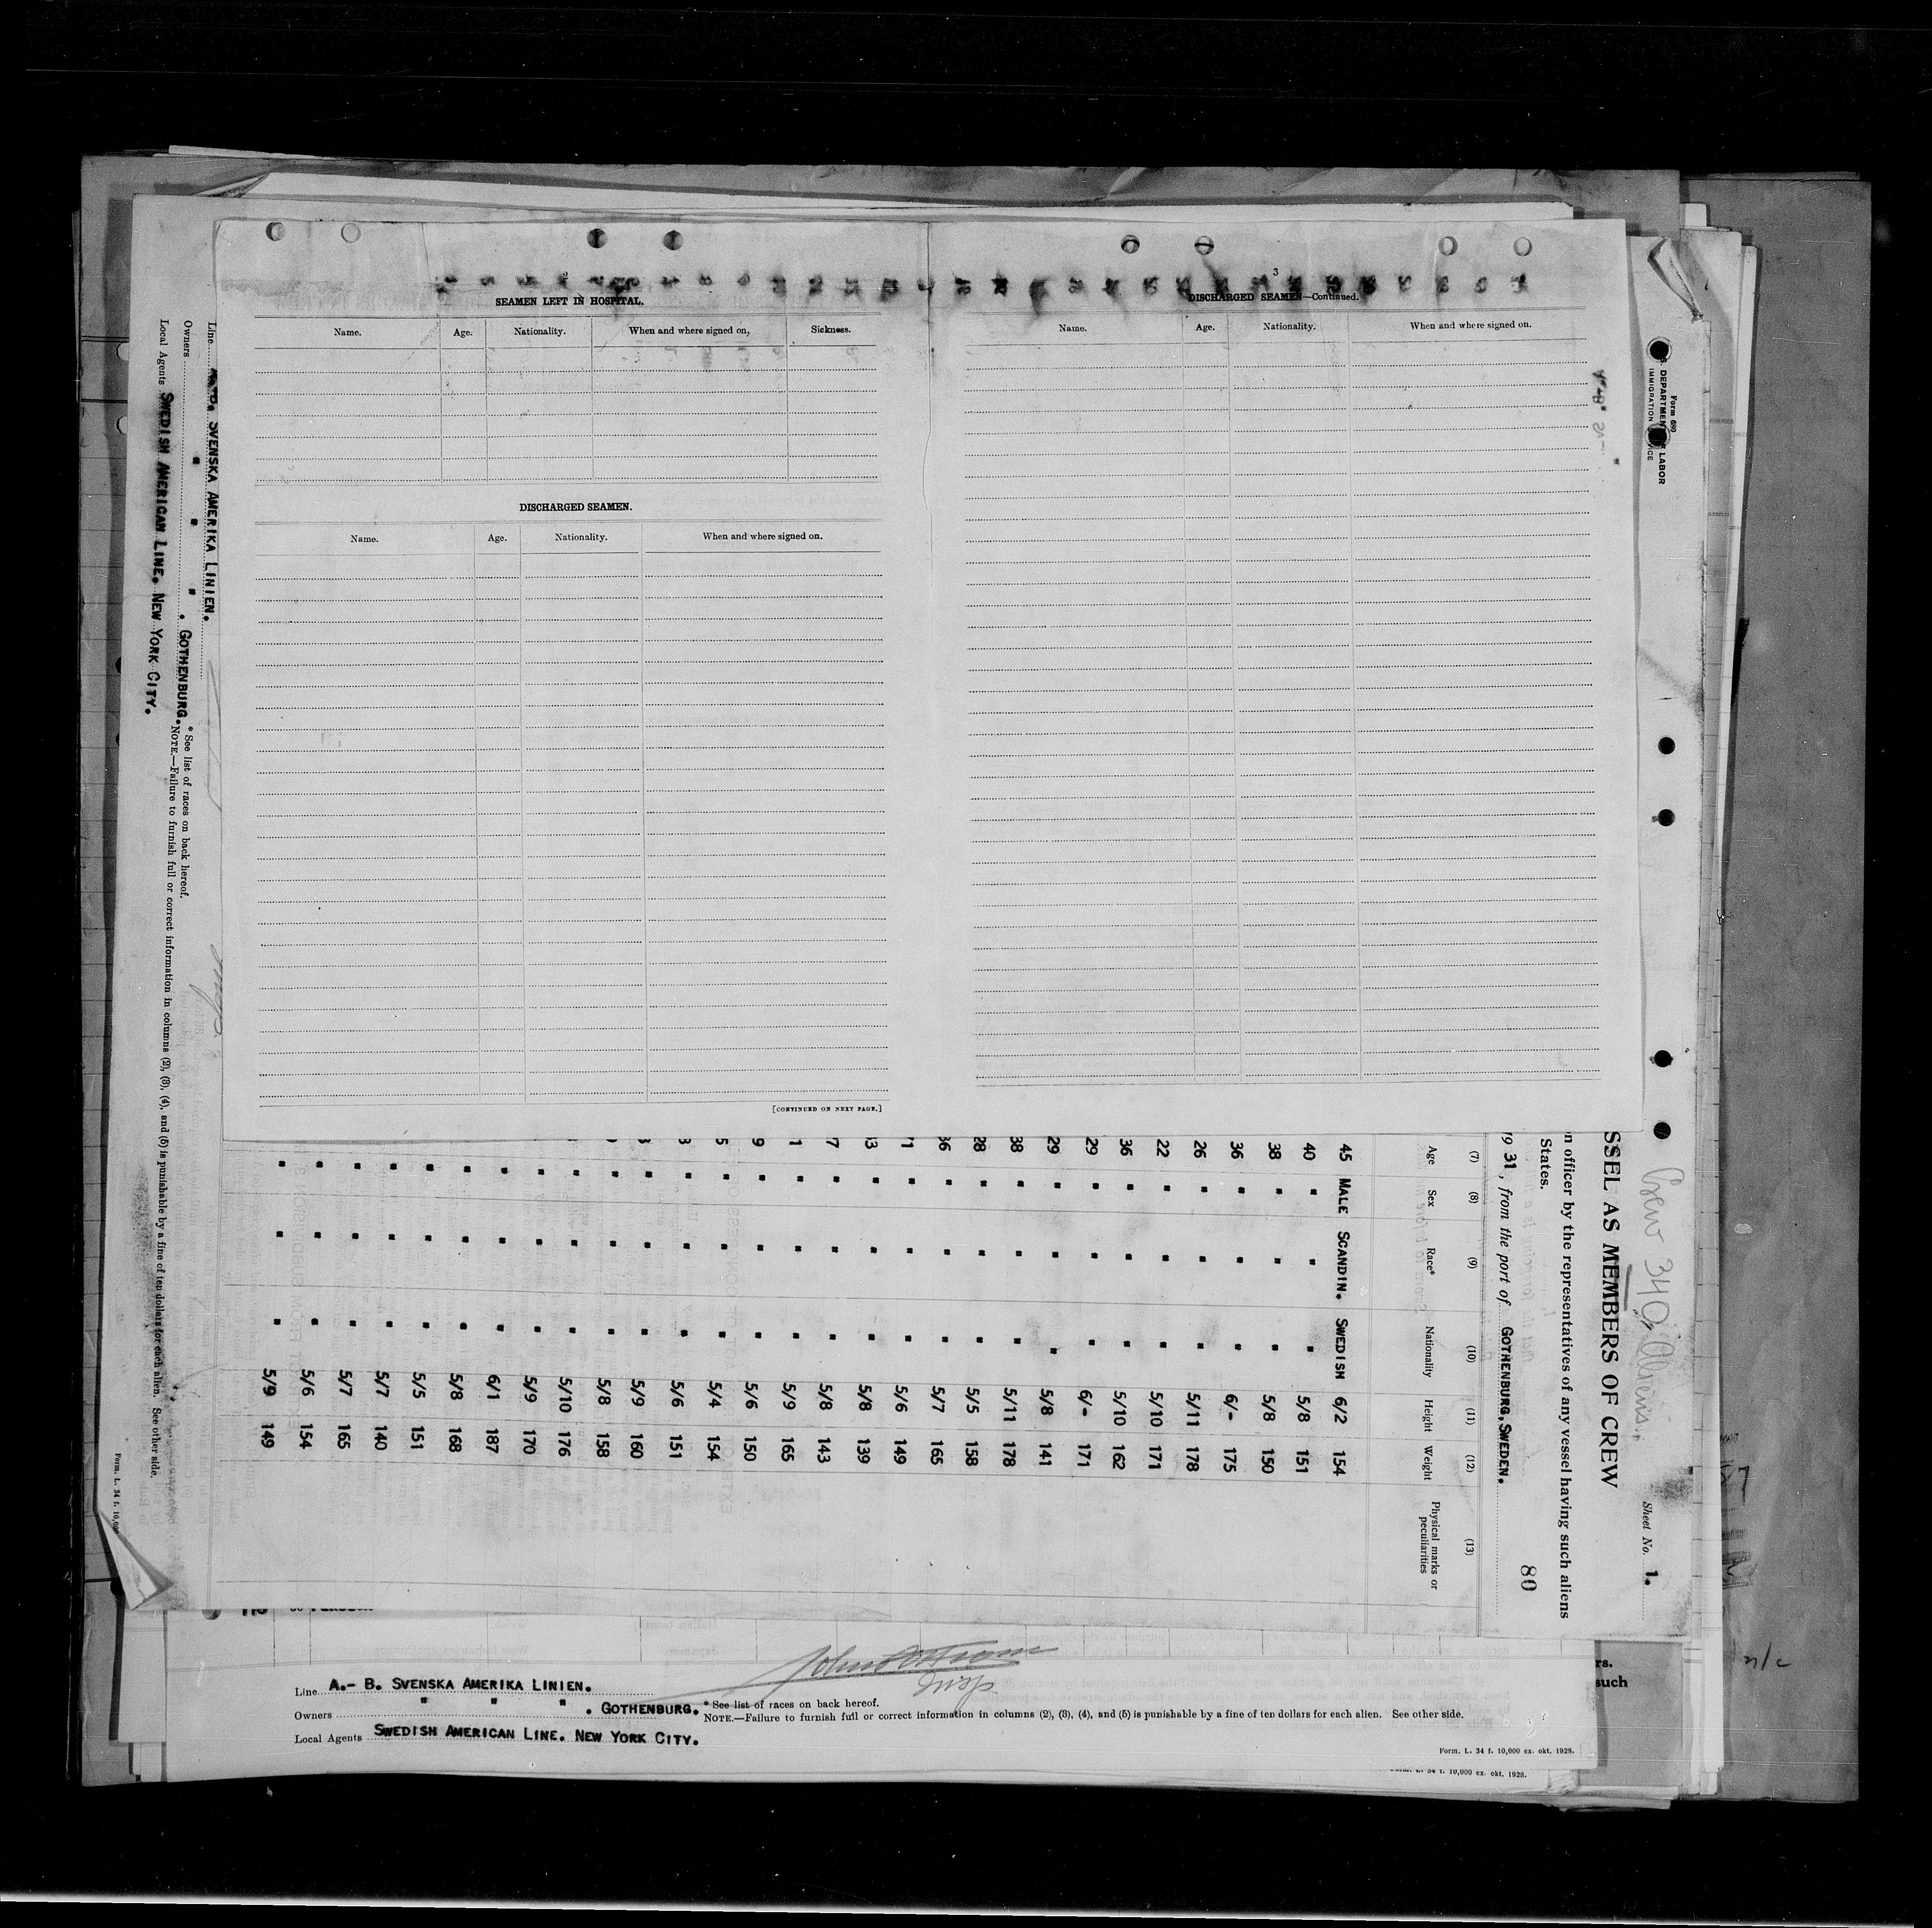 2
SEAMEN LEFT IN HOSPITAL.
Name. Age. Nationality. When and where signed on, Sickness.
DISCHARGED SEAMEN.
Name. Age. Nationality. When and where signed on.
[CONTINUED ON NEXT PAGE.]
3
DISCHARGED SEAMEN—Continued.
Name. Age. Nationality. When and where signed on.
Form 680
DEPARTMENT LABOR
IMMIGRATION
Crew 340, Aliens.
Sheet No. 1.
SSEL AS MEMBERS OF CREW
n officer by the representatives of any vessel having such aliens
States.
80
19 31, from the port of GOTHENBURG, SWEDEN.
(7) (8) (9) (10) (11) (12) (13)
Age Sex Race* Nationality Height Weight Physical marks or peculiarities
45 MALE SCANDIN. SWEDISH 6/2 154
40 " " " 5/8 151
38 " " " 5/8 150
36 " " " 6/- 175
26 " " " 5/11 178
22 " " " 5/10 171
36 " " " 5/10 162
29 " " " 6/- 171
29 " " " 5/8 141
38 " " " 5/11 178
28 " " " 5/5 158
36 " " " 5/7 165
1 " " " 5/6 149
33 " " " 5/8 139
7 " " " 5/8 143
1 " " " 5/9 165
9 " " " 5/6 150
5 " " " 5/4 154
3 " " " 5/6 151
" " " 5/9 160
" " " 5/8 158
" " " 5/10 176
" " " 5/9 170
" " " 6/1 187
" " " 5/8 168
" " " 5/5 151
" " " 5/7 140
" " " 5/7 165
" " " 5/6 154
" " " 5/9 149
Line A.-B. SVENSKA AMERIKA LINIEN.
Owners " " " . GOTHENBURG. * See list of races on back hereof.
Local Agents SWEDISH AMERICAN LINE. NEW YORK CITY.
NOTE.—Failure to furnish full or correct information in columns (2), (3), (4), and (5) is punishable by a fine of ten dollars for each alien. See other side.
Form. L. 34 f. 10,00
Insp
Line A.- B. SVENSKA AMERIKA LINIEN.
Owners " " " . GOTHENBURG. * See list of races on back hereof.
NOTE.—Failure to furnish full or correct information in columns (2), (3), (4), and (5) is punishable by a fine of ten dollars for each alien. See other side.
Local Agents SWEDISH AMERICAN LINE. NEW YORK CITY.
Form. L. 34 f. 10,000 ex. okt. 1928.
Form. L. 34 f. 10,000 ex. okt. 1928.
rs.
such
n/c